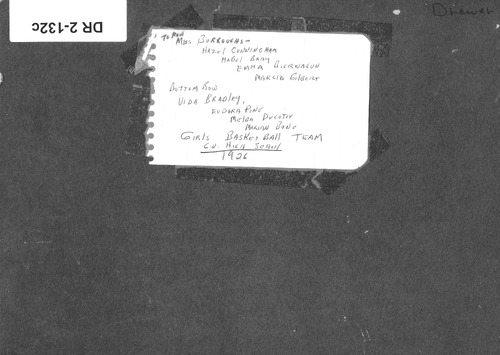 DR 2-132c
Drewer
To Row
Miss Burroughs-
Hazel Cunningham
Mabel Bray
Emma Bierwagun
Marcia Gilbert
Bottom Row
Vida Bradley,
Eudora Pine
Melba Ducotiv
Marian Bone
Girls Basket Ball Team
C.V. High School
1926